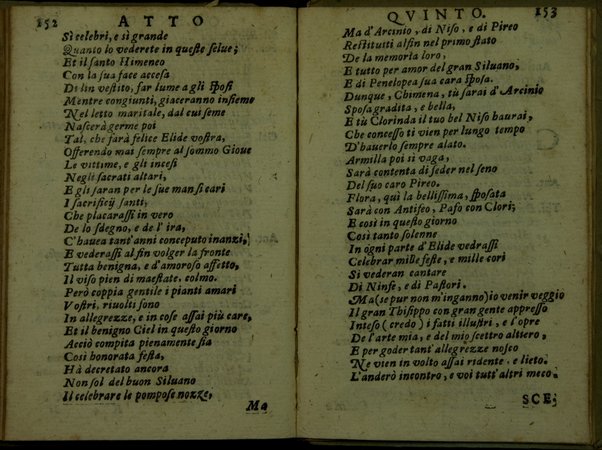 152 ATTO
Sì celebri, e sì grande
Quanto lo vederete in queste selue;
Et il santo Himeneo
Con la sua face accesa
Di lin vestito, far lume a gli Sposi
Mentre congiunti, giaceranno insieme
Nel letto maritale, dal cui seme
Nascerà germe poi
Tal, che farà felice Elide vostra,
Offerendo mai sempre al sommo Gioue
Le vittime, e gli incesi
Negli sacrati altari,
E gli saran per le sue man sì cari
I sacrificij santi,
Che placarassi in vero
De lo sdegno, e de l'ira,
C'hauea tant'anni conceputo inanzi,
E vederassi alfin volger la fronte
Tutta benigna, e d'amoroso affetto,
Il viso pien di maestate colmo.
Però coppia gentile i pianti amari
Vostri, riuolti sono
In allegrezze, e in cose assai più care,
Et il benigno Ciel in questo giorno
Acciò compita pienamente sia
Così honorata festa,
Hà decretato ancora
Non sol del buon Siluano
Il celebrare le pompose nozze,
Ma
QVINTO. 153
Ma d'Arcinio, di Niso, e di Pireo
Restituti alfin nel primo stato
De la memoria loro,
E tutto per amor del gran Siluano,
E di Penelopea sua cara Sposa.
Dunque, Chimena, tù sarai d'Arcinio
Sposa gradita, e bella,
E tù Clorinda il tuo bel Niso haurai,
Che concesso ti vien per lungo tempo
D'hauerlo sempre alato.
Armilla poi sì vaga,
Sarà contenta di seder nel seno
Del suo caro Pireo.
Flora, quì la bellissima, sposata
Sarà con Antifeo, Pafo con Clori;
E così in questo giorno
Così tanto solenne
In ogni parte d'Elide vedrassi
Celebrar mille feste, e mille cori
Si vederan cantare
Di Ninfe, e di Pastori.
Ma (se pur non m'inganno) io venir veggio
Il gran Thisippo con gran gente appresso
Inteso (credo) i fatti illustri, e l'opre
De l'arte mia, e del mio scettro altiero,
E per goder tant'allegrezze nosco
Ne vien in volto assai ridente, e lieto.
L'anderò incontro, e voi tutt'altri meco.
SCE-